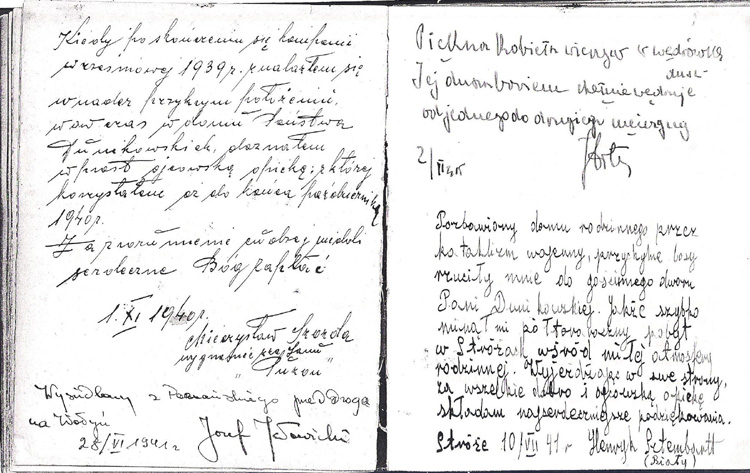 Kiedy po skończeniu się kampanii
wrześniowej 1939 r. znalazłem się
w nader przykrym położeniu,
wówczas w domu Państwa
Dunikowskich, doznałem
wprost ojcowską opiekę; z której
korzystałem aż do końca października
1940 r.
Za zrozumienie cudzej niedoli
serdeczne Bóg zapłać
1. XI 1940 r.
Mieczysław
wygnaniec
Wysiedlony z Poznańskiego przed drogą
na Wołyń
28/VI 1941 r
Józef
Piękna Kobieta wierzy w wędrówkę
dusz
Jej dusza bowiem chętnie wędruje
od jednego do drugiego mężczyzny
2/
Pozbawiony domu rodzinnego przez
kataklizm wojenny, przykre losy
rzuciły mnie do gościnnego dworu
Pani Dunikowskiej. Jakże szybko
minął mi półtoraroczny pobyt
w Stróżach wśród miłej atmosfery
rodzinnej. Wyjeżdżając w swe strony,
za wszelkie dobro i ojcowską opiekę
składam najserdeczniejsze podziękowania.
Stróże 10/VII 41 r Henryk